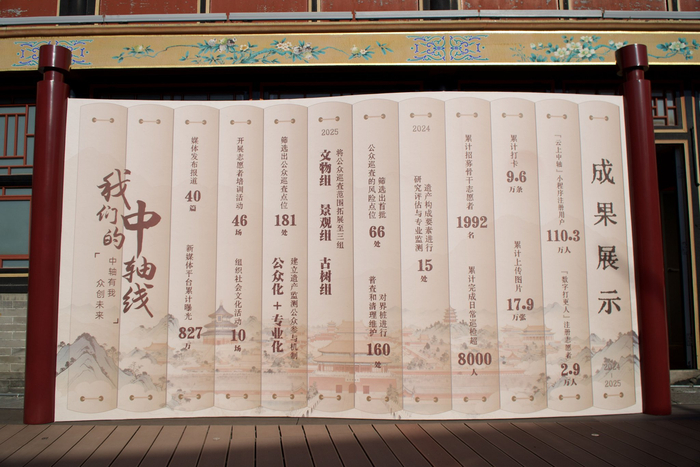 成果展示
2024
2025
「云上中轴」小程序注册用户
110.3
万人
「数字打更人」注册志愿者
2.9
万人
累计打卡
9.6
万条
累计上传图片
17.9
万张
累计招募骨干志愿者
1992
名
累计完成日常巡检超
8000
人
2024
遗产构成要素进行
研究评估与专业监测
15
处
筛选出首批
公众巡查的风险点位
66
处
对界桩进行
普查和清理维护
160
处
2025
将公众巡查范围拓展至三组
文物组 景观组 古树组
筛选出公众巡查点位
181
处
建立遗产监测公众参与机制
公众化+专业化
开展志愿者培训活动
46
场
组织社会文化活动
10
场
媒体发布报道
40
篇
新媒体平台累计曝光
827
万
我们的
中轴线
「中轴有我
众创未来」